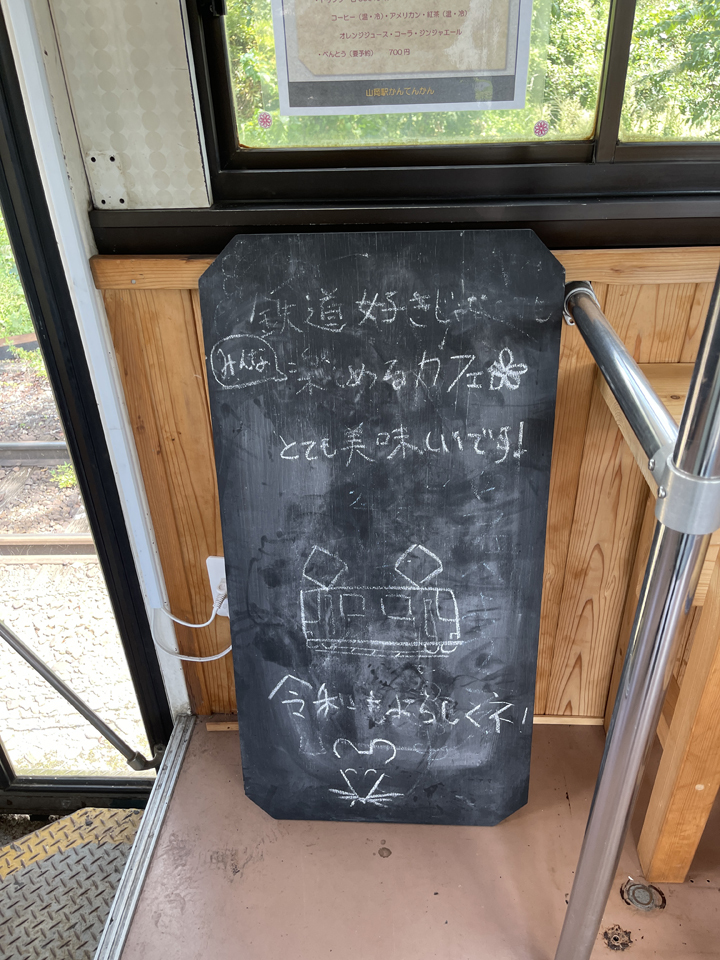 コーヒー（温・冷）・アメリカン・紅茶（温・冷）
オレンジジュース・コーラ・ジンジャエール
・べんとう（要予約） 700円
山岡駅かんてんかん
鉄道好きじゃ
みんな
楽しめるカフェ
とても美味しいです!
令和もよろしくネ!